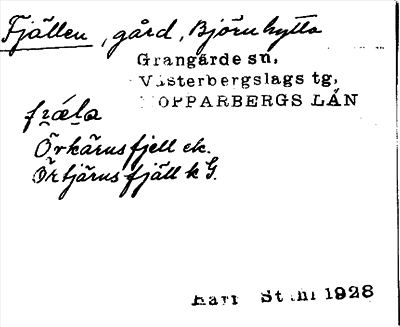 Fjällen, gård, Björnhytta
Grangärde sn,
Västerbergslags tg,
KOPPARBERGS LÄN
Örkärnsfjell ek.
Örtjärnsfjäll k G.
Karl Ståhl 1928